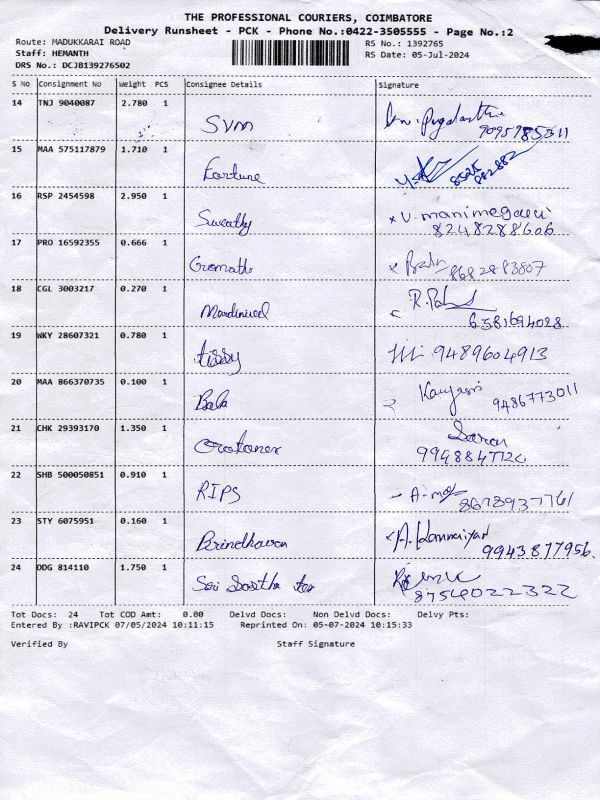 THE PROFESSIONAL COURIERS, COIMBATORE
Delivery Runsheet - PCK - Phone No.:0422-3505555 - Page No.:2
Route: MADUKKARAI ROAD RS No.: 1392765
Staff: HEMANTH RS Date: 05-Jul-2024
DRS No.: DCJB139276502
S No Consignment No Weight PCS Consignee Details Signature
14 TNJ 9040087 2.780 1 SVM
15 MAA 575117879 1.710 1 Fortune 8525
882882
16 RSP 2454598 2.950 1 Swathy x V. manimegalai
8248288606
17 PRO 16592355 0.666 1 x 8682883807
18 CGL 3003217 0.270 1
6581694028
19 WKY 28607321 0.780 1 9489604913
20 MAA 866370735 0.100 1 Bala 9486773011
21 CHK 29393170 1.350 1 Saran
22 SHB 500050851 0.910 1 RIPS
8678937761
23 STY 6075951 0.160 1 Brindhavan
9943877956.
24 ODG 814110 1.750 1 Sri
8754022322
Tot Docs: 24 Tot COD Amt: 0.00 Delvd Docs: Non Delvd Docs: Delvy Pts:
Entered By :RAVIPCK 07/05/2024 10:11:15 Reprinted On: 05-07-2024 10:15:33
Verified By Staff Signature